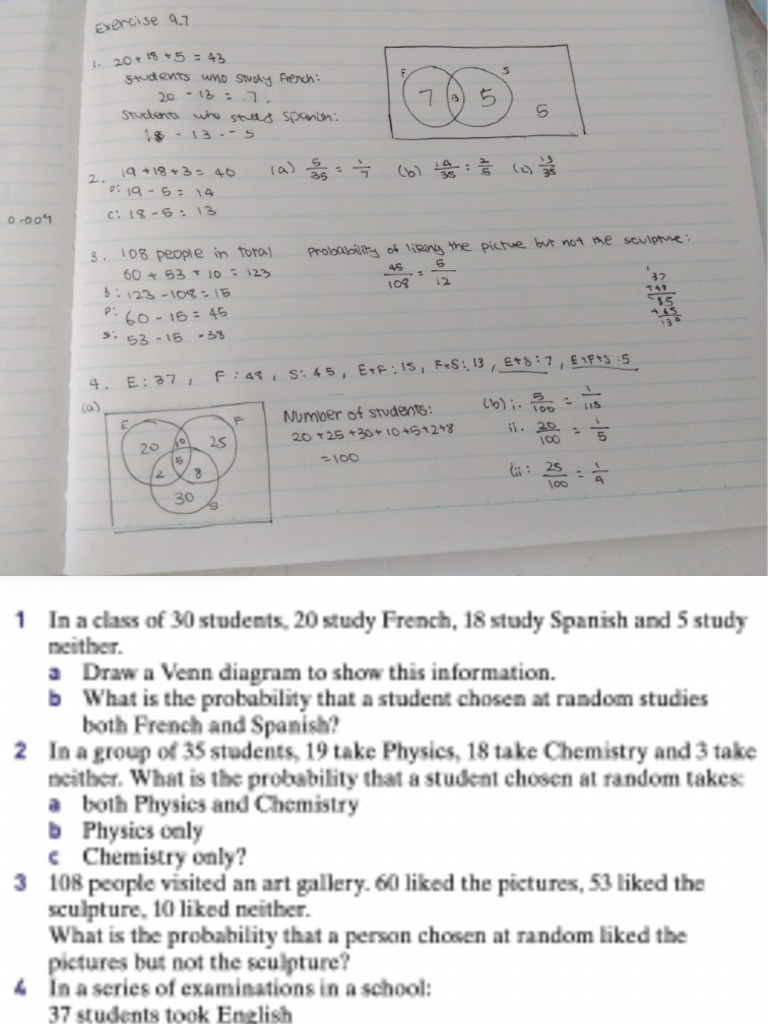 Exercise 9.7
1. 20 + 18 + 5 = 43
students who study French:
20 - 13 = 7,
Students who study Spanish:
18 - 13 - - 5
F S
7 13 5
5
2. 19 + 18 + 3 = 40 (a) 5/35 = 1/7 (b) 14/35 : 2/5 (c) 13/35
P: 19 - 5 = 14
C: 18 - 5 = 13
0.004
3. 108 people in total Probability of liking the pictue but not the sculpture:
60 + 53 + 10 = 123 45/108 = 5/12
b: 123 - 108 = 15
P: 60 - 15 = 45
S: 53 - 15 - 38
37
4. E: 37, F: 48, S: 45, E+F: 15, F+S: 13, E+S: 7, E+F+S: 5
(a)
E F
20 10 25
5
2 8
30
S
Number of students:
20 + 25 + 30 + 10 + 5 + 2 + 8
= 100
(b) i. 5/100 = 1/115
ii. 20/100 = 1/5
iii: 25/100 = 1/4
1 In a class of 30 students, 20 study French, 18 study Spanish and 5 study
neither.
a Draw a Venn diagram to show this information.
b What is the probability that a student chosen at random studies
both French and Spanish?
2 In a group of 35 students, 19 take Physics, 18 take Chemistry and 3 take
neither. What is the probability that a student chosen at random takes:
a both Physics and Chemistry
b Physics only
c Chemistry only?
3 108 people visited an art gallery. 60 liked the pictures, 53 liked the
sculpture, 10 liked neither.
What is the probability that a person chosen at random liked the
pictures but not the sculpture?
4 In a series of examinations in a school:
37 students took English